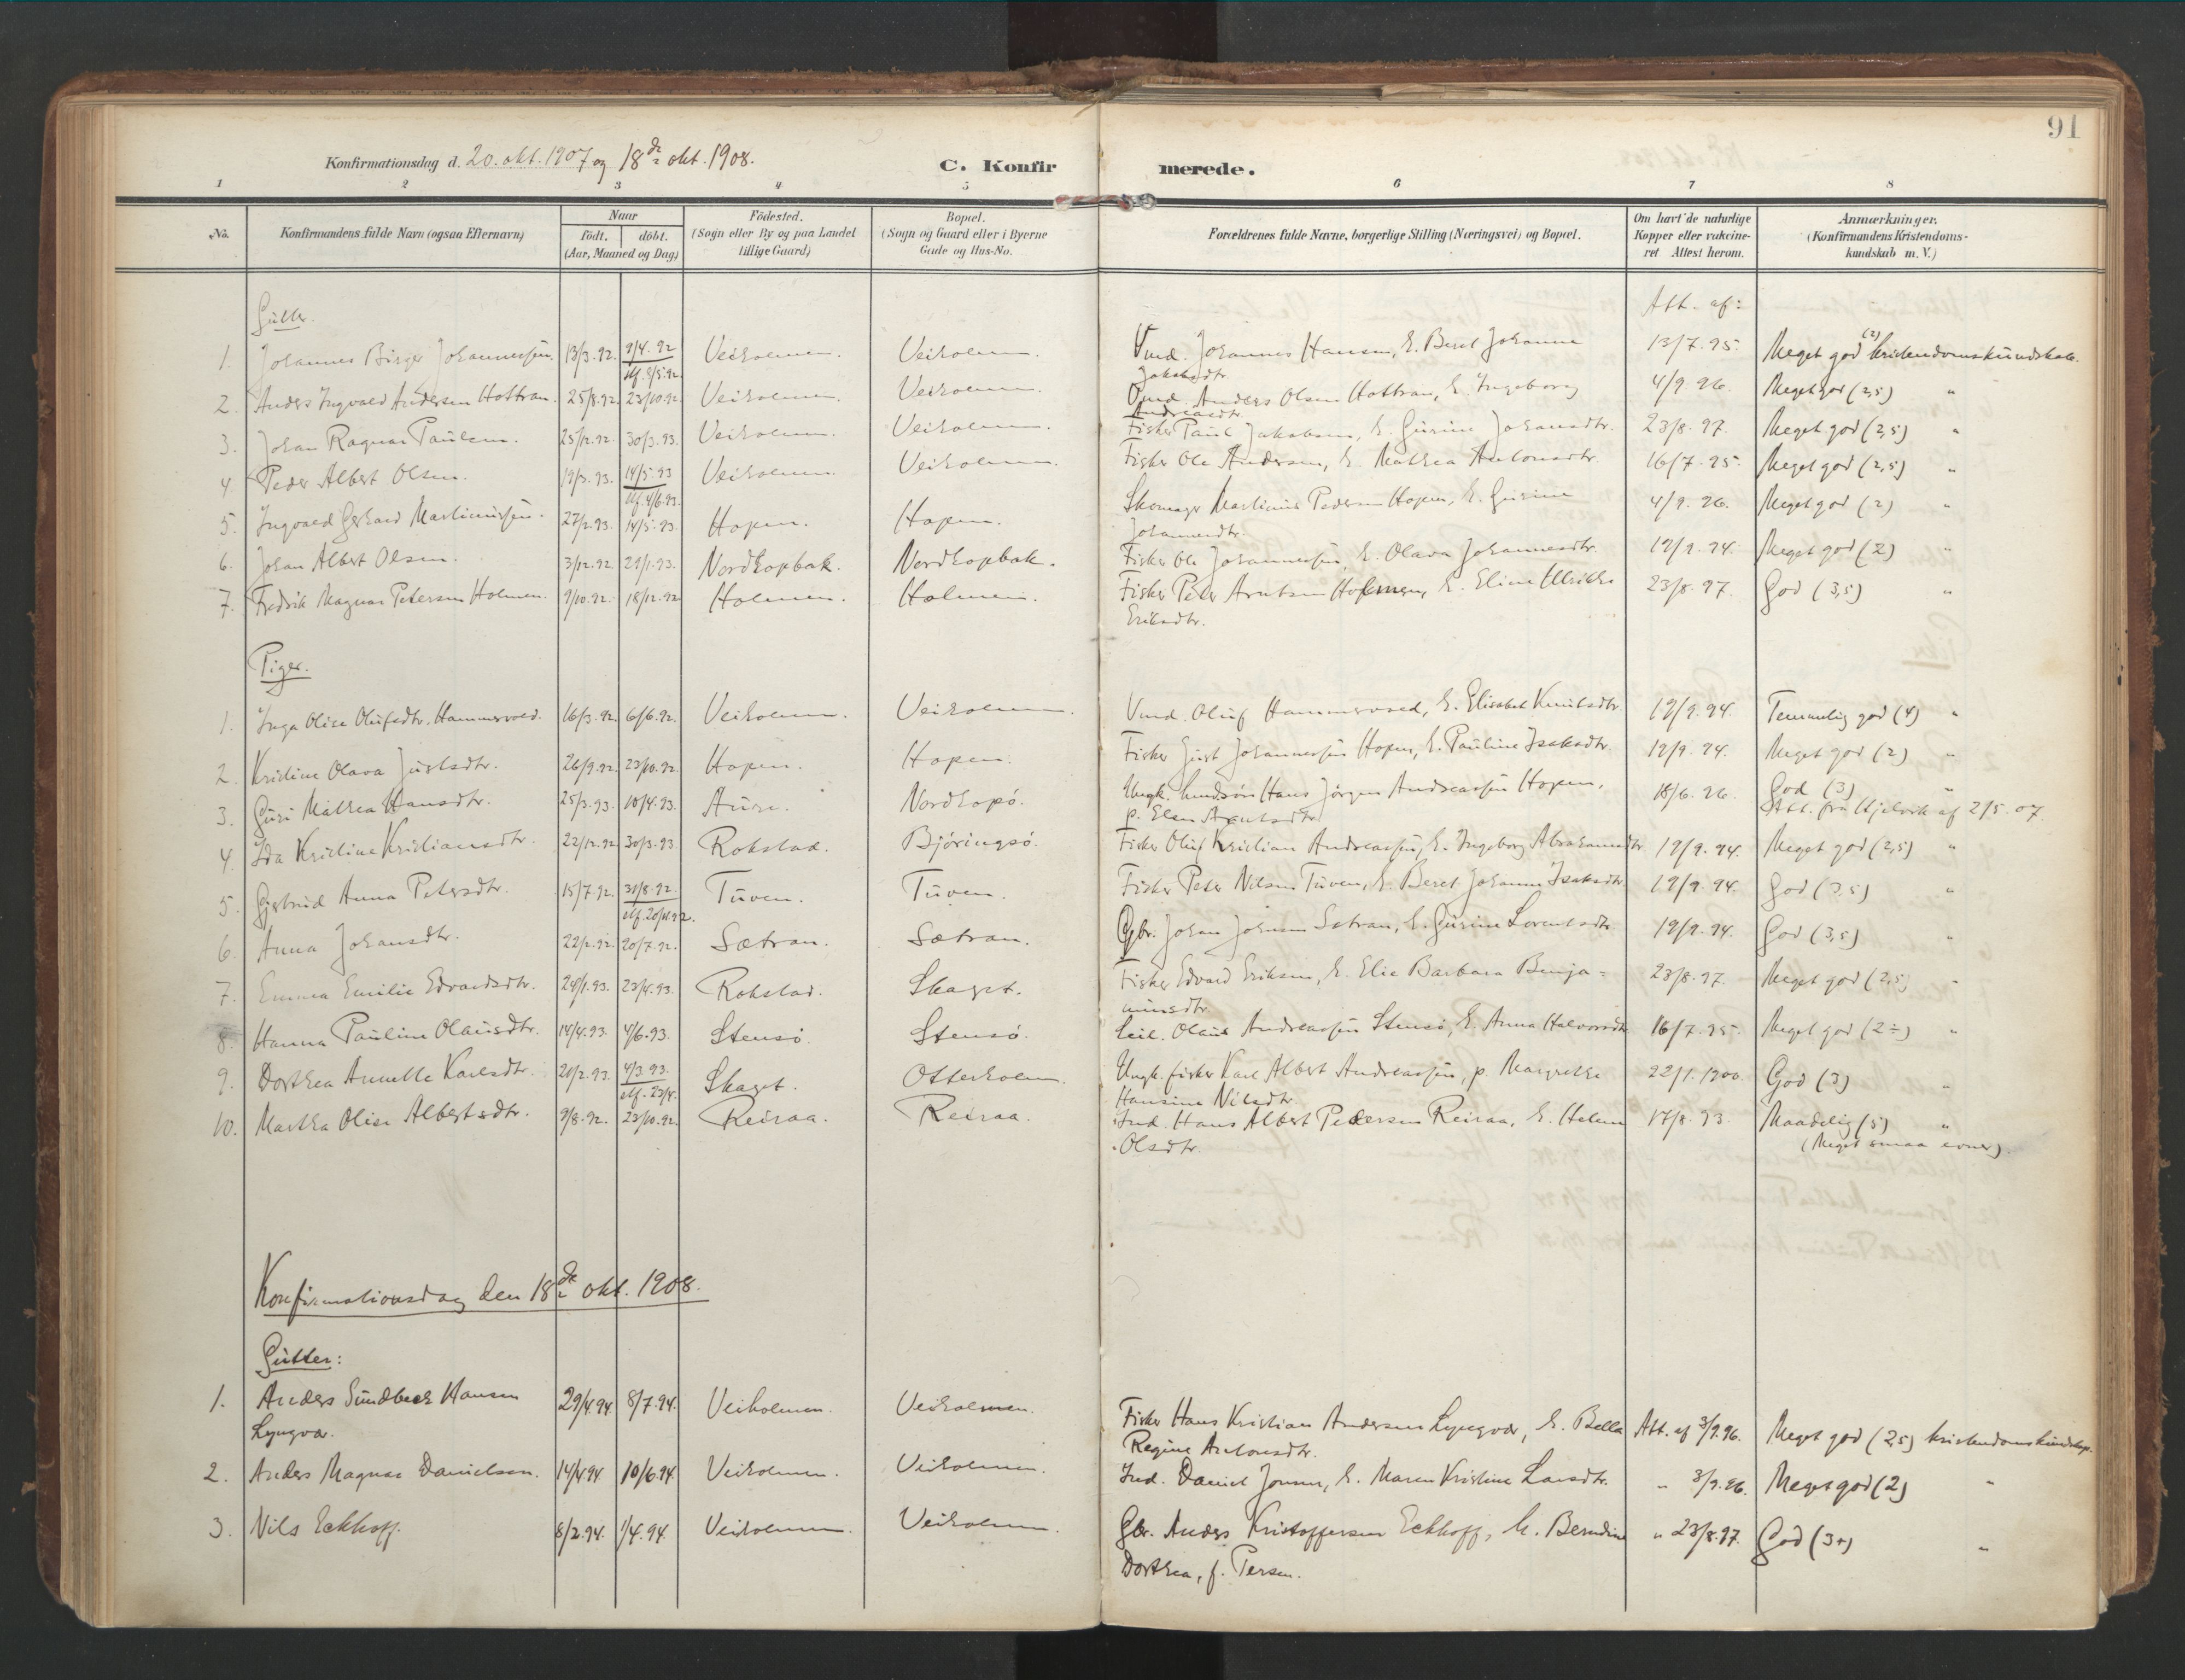 91
Konfirmationsdag d. 20. okt. 1907 og 18de okt. 1908.
C. Konfirmerede.
1 2 3 4 5 6 7 8
No.
Konfirmandens fulde Navn (ogsaa Efternavn)
Naar
födt. döbt.
(Aar, Maaned og Dag)
Födested.
(Sogn eller By og paa Landet
tillige Gaard)
Bopæl.
(Sogn og Gaard eller i Byerne
Gade og Hus-No.
Forældrenes fulde Navne, borgerlige Stilling (Næringsvei) og Bopæl.
Om havt de naturlige
Kopper eller vakcine-
ret Attest herom.
Anmærkninger.
(Konfirmandens Kristendoms-
kundskab m. V.)
Gutter.
Att. af:
1. Johannes Birger Johannessen. 13/3.92. 9/4.92 Veiholmen. Veiholmen. Johannes Hansen, h. Beret Johanna 13/7.95. Meget god (2) kristendomskundskab.
stf. 8/5.92. Jakobsdtr.
2. Anders Ingvald Andersen Hottran. 25/8.92. 23/10.92. Veiholmen. Veiholmen. Anders Olsen Hottran, h. Ingeborg 4/9.96. Meget god (2,5) "
Andreasdtr.
3. Johan Ragnar Paulsen. 25/12.92. 30/3.93. Veiholmen. Veiholmen. Fisker Paul Jakobsen, h. Gurine Johansdtr. 23/8.97. Meget god (2,5) "
4. Peder Albert Olsen. 19/3.93. 14/5.93 Veiholmen. Veiholmen. Fisker Ole Andersen, h. Mathea Antonsdtr. 16/7.95. Meget god (2,5) "
stf. 4/6.93.
5. Ingvald Gerhard Martinussen. 27/2.93. 14/5.93. Hopen. Hopen. Skomager Martinus Pedersen Hopen, h. Gurine 4/9.96. Meget god (2) "
Johannesdtr.
6. Johan Albert Olsen. 3/12.92. 29/1.93. Nordhopbak. Nordhopbak. Fisker Ole Johannessen, h. Olava Johannesdtr. 19/9.94. Meget god (2) "
7. Fredrik Magnus Petersen Holmen. 9/10.92. 18/12.92 Holmen. Holmen. Fisker Peter Arntsen Holmen, h. Eline Ulrikke 23/8.97. God (3,5) "
Eriksdtr.
Piger.
1. Inga Olise Olufsdtr. Hammervold. 16/3.92. 6/6.92. Veiholmen. Veiholmen. Oluf Hammervold, h. Elisabet Knutsdtr. 19/9.94. Temmelig god (4) "
2. Kristine Olava Justsdtr. 26/9.92. 23/10.92. Hopen. Hopen. Fisker Just Johannessen Hopen, h. Pauline Isaksdtr. 19/9.94. Meget god (2) "
3. Guri Mathea Hansdtr. 25/3.93. 10/4.93. Aure. Nordhopö. Ungk. Hans Jörgen Andreassen Hopen, 18/6.96. God (3) "
p. Elen Arntsdtr. Att. fra af 2/5.07
4. Ida Kristine Kristiansdtr. 22/12.92 30/3.93 Rokstad. Björingsö. Fisker Oluf Kristian Andreassen, h. Ingeborg Abrahamsdtr 19/9.94. Meget god (2,5) "
5. Gjertrud Anna Petersdtr. 15/7.92. 31/8.92. Tuven. Tuven. Fisker Peter Nilsen Tuven, h. Beret Johanna Isaksdtr 19/9.94. God (3,5) "
stf.
6. Anna Johansdtr. 22/2.92. 20/7.92. Sætran. Sætran. Gbr. Johan Johnsen Sætran, h. Gurine Lorentsdtr 19/9.94. God (3,5) "
7. Emma Emilie Edvardsdtr. 24/1.93. 23/4.93. Rokstad. Skaget. Fisker Edvard Eriksen, h. Elie Barbara Benja= 23/8.97. Meget god (2,5)
minsdtr
8. Hanna Pauline Olausdtr. 14/4.93. 4/6.93. Stensö. Stensö. Leil. Olaus Andreassen Stensö, h. Anna Halvorsdtr 16/7.95. Meget god (2÷) "
9. Dorthea Annette Karlsdtr. 20/2.93. 4/3.93. Skaget. Otterholmen. Ungk. fisker Karl Albert Andreassen, p. Margrethe 22/1.1900. God (3) "
stf. 23/4. Hansine Nilsdtr.
10. Martha Olise Albertsdtr. 9/8.92. 23/10.92. Reiraa. Reiraa. Ind. Hans Albert Pedersen Reiraa, h. Helene 17/8.93. Maadelig (5) "
Olsdtr. (Meget smaa evner).
Konfirmationsdag den 18de okt. 1908.
Gutter:
1. Anders Sundbeck Hansen 29/4.94. 8/7.94. Veiholmen. Veiholmen. Fisker Hans Kristian Andersen Lyngvær, h. Bella Att. af 3/9.96. Meget god (2,5) kristendomskundskap.
Lyngvær. Regine Antonsdtr.
2. Anders Magnus Danielsen. 14/4.94. 10/6.94. Veiholmen. Veiholmen. Ind. Daniel Jonsen, h. Maren Kristine Larsdtr. " 3/9.96. Meget god (2) "
3. Nils Eckhoff. 8/2.94. 1/4.94. Veiholmen. Veiholmen. Gbr. Anders Kristoffersen Eckhoff, h. Berndine " 23/8.97. God (3+) "
Dorthea, f. Persen.